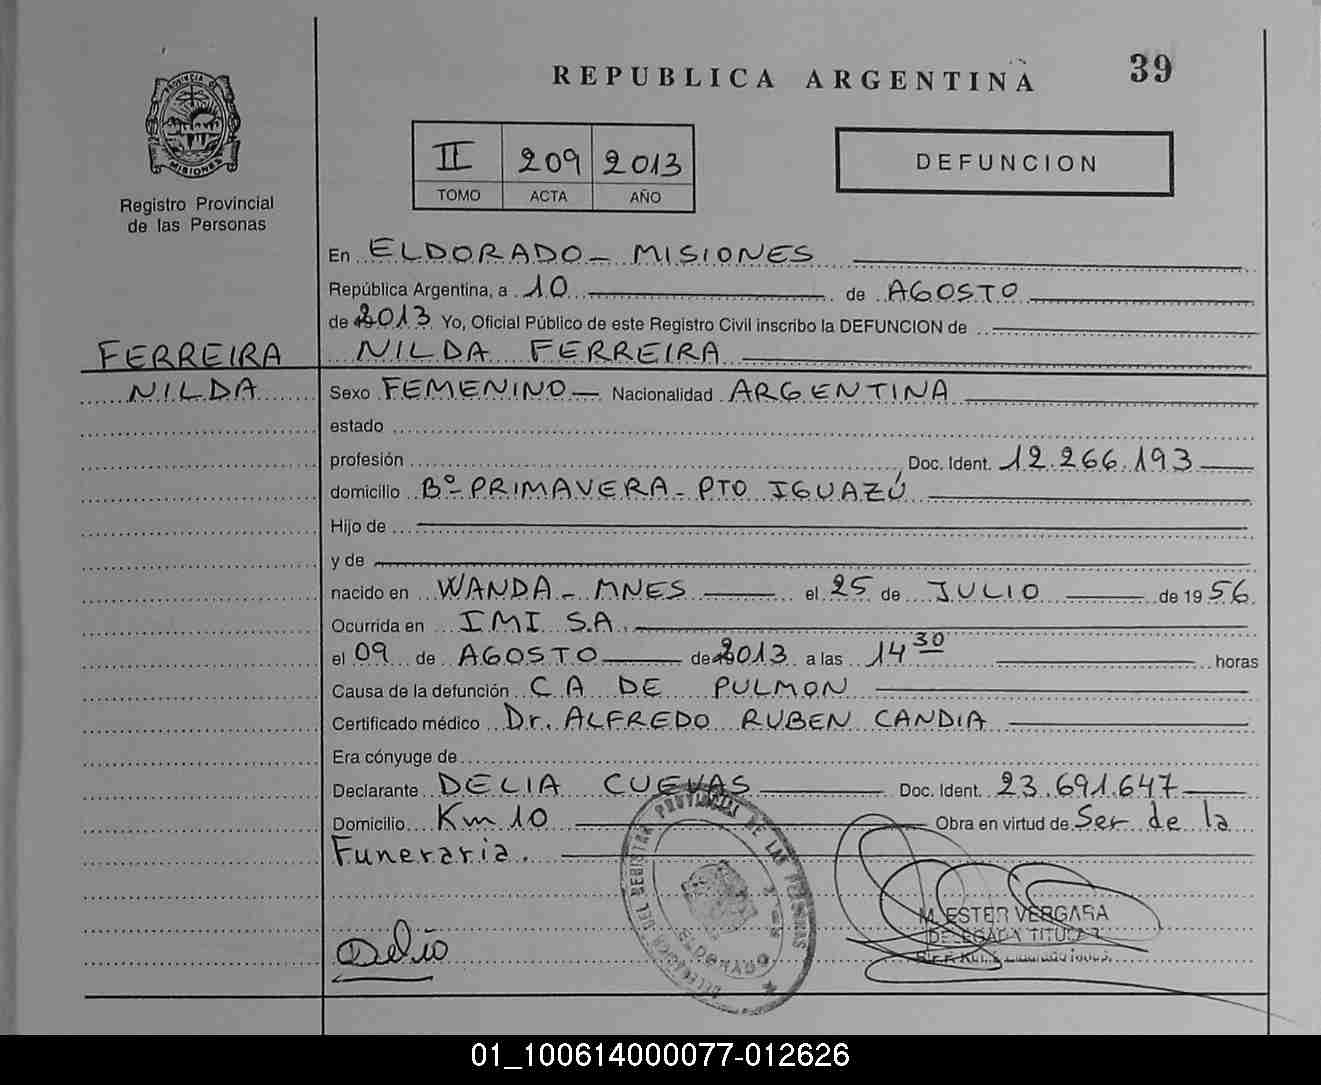 REPUBLICA ARGENTINA
39
PROVINCIA D
MISIONES
Registro Provincial
de las Personas
II 209 2013
TOMO ACTA AÑO
DEFUNCION
En ELDORADO - MISIONES
República Argentina, a 10 de AGOSTO
de 2013 Yo, Oficial Público de este Registro Civil inscribo la DEFUNCION de
FERREIRA
NILDA
NILDA FERREIRA
Sexo FEMENINO - Nacionalidad ARGENTINA
estado
profesión Doc. Ident. 12.266.193
domicilio Bº PRIMAVERA - PTO IGUAZÚ
Hijo de
y de
nacido en WANDA - MNES el 25 de JULIO de 1956
Ocurrida en IMI S.A.
el 09 de AGOSTO de 2013 a las 14 30 horas
Causa de la defunción CA DE PULMON
Certificado médico Dr. ALFREDO RUBEN CANDIA
Era cónyuge de
Declarante DELIA CUEVAS Doc. Ident. 23.691.647
Domicilio Km 10 Obra en virtud de Ser de la
Funeraria.
DELEGACION DEL REGISTRO PROVINCIAL DE LAS PERSONAS
ELDORADO
M. ESTER VERGARA
DELEGADA TITULAR
01_100614000077-012626